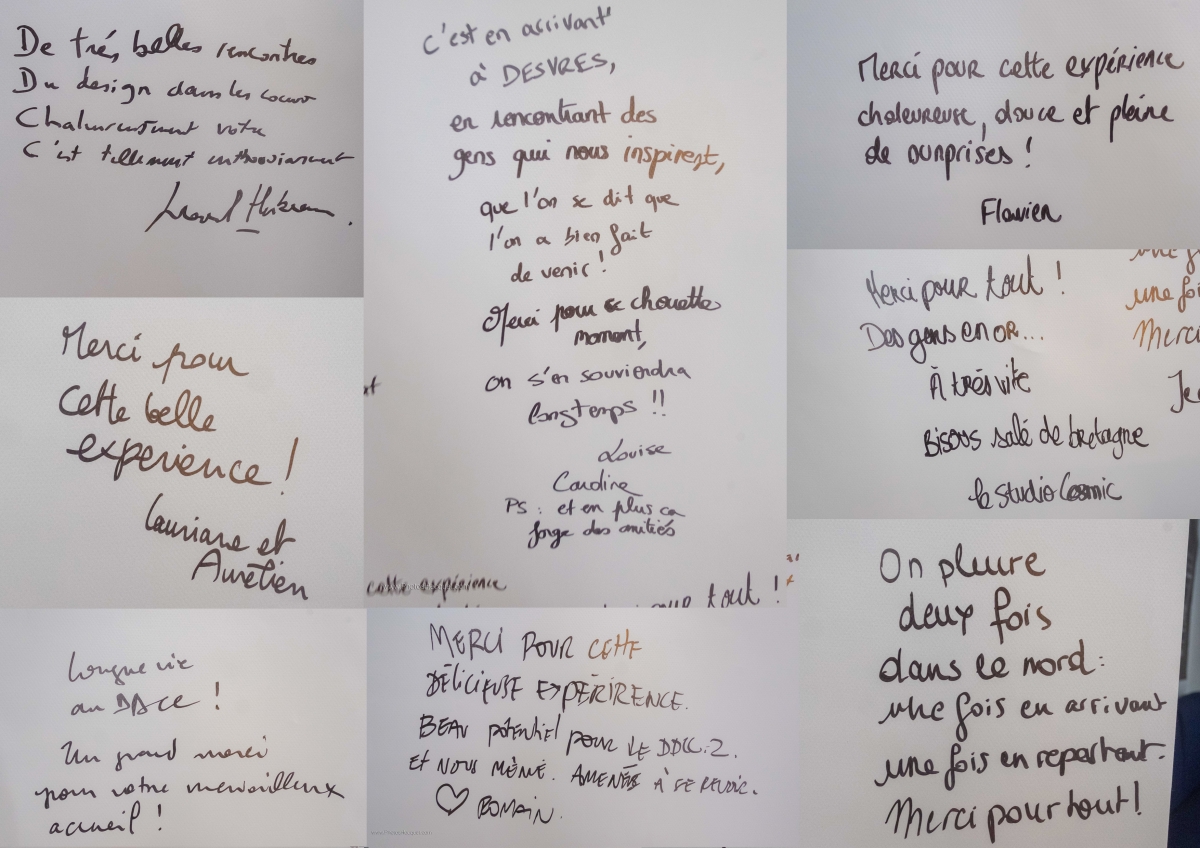 De très belles rencontres
Du design dans les coeurs
Chaleureusement votre
C'est tellement enthousiasmant
Merci pour
cette belle
experience !
Lauriane et
Aurélien
Longue vie
au DDCE !
Un grand merci
pour votre merveilleux
accueil !
C'est en arrivant
à DESVRES,
en rencontrant des
gens qui nous inspirent,
que l'on se dit que
l'on a bien fait
de venir !
Merci pour ce chouette
moment,
on s'en souviendra
longtemps !!
Louise
Caroline
PS : et en plus ca
forge des amitiés
cette expérience
tout !
MERCI POUR CETTE
DÉLICIEUSE EXPÉRIRENCE.
BEAU POTENTIEL POUR LE DDCC.2.
ET NOUS MÊME. AMENÉS À SE REVOIR.
♡ ROMAIN.
Merci pour cette expérience
chaleureuse, douce et pleine
de ounprises !
Flavien
Merci pour tout !
Des gens en or...
À très vite
Bisous salé de bretagne
le studio Cosmic
une fois
Merci
On pleure
deux fois
dans le nord :
une fois en arrivant
une fois en repartant.
Merci pour tout !